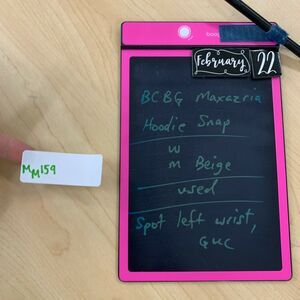 boog
February 22
BCBG Maxazria
Hoodie Snap
W
M Beige
used
Spot left wrist,
GUC
MM159